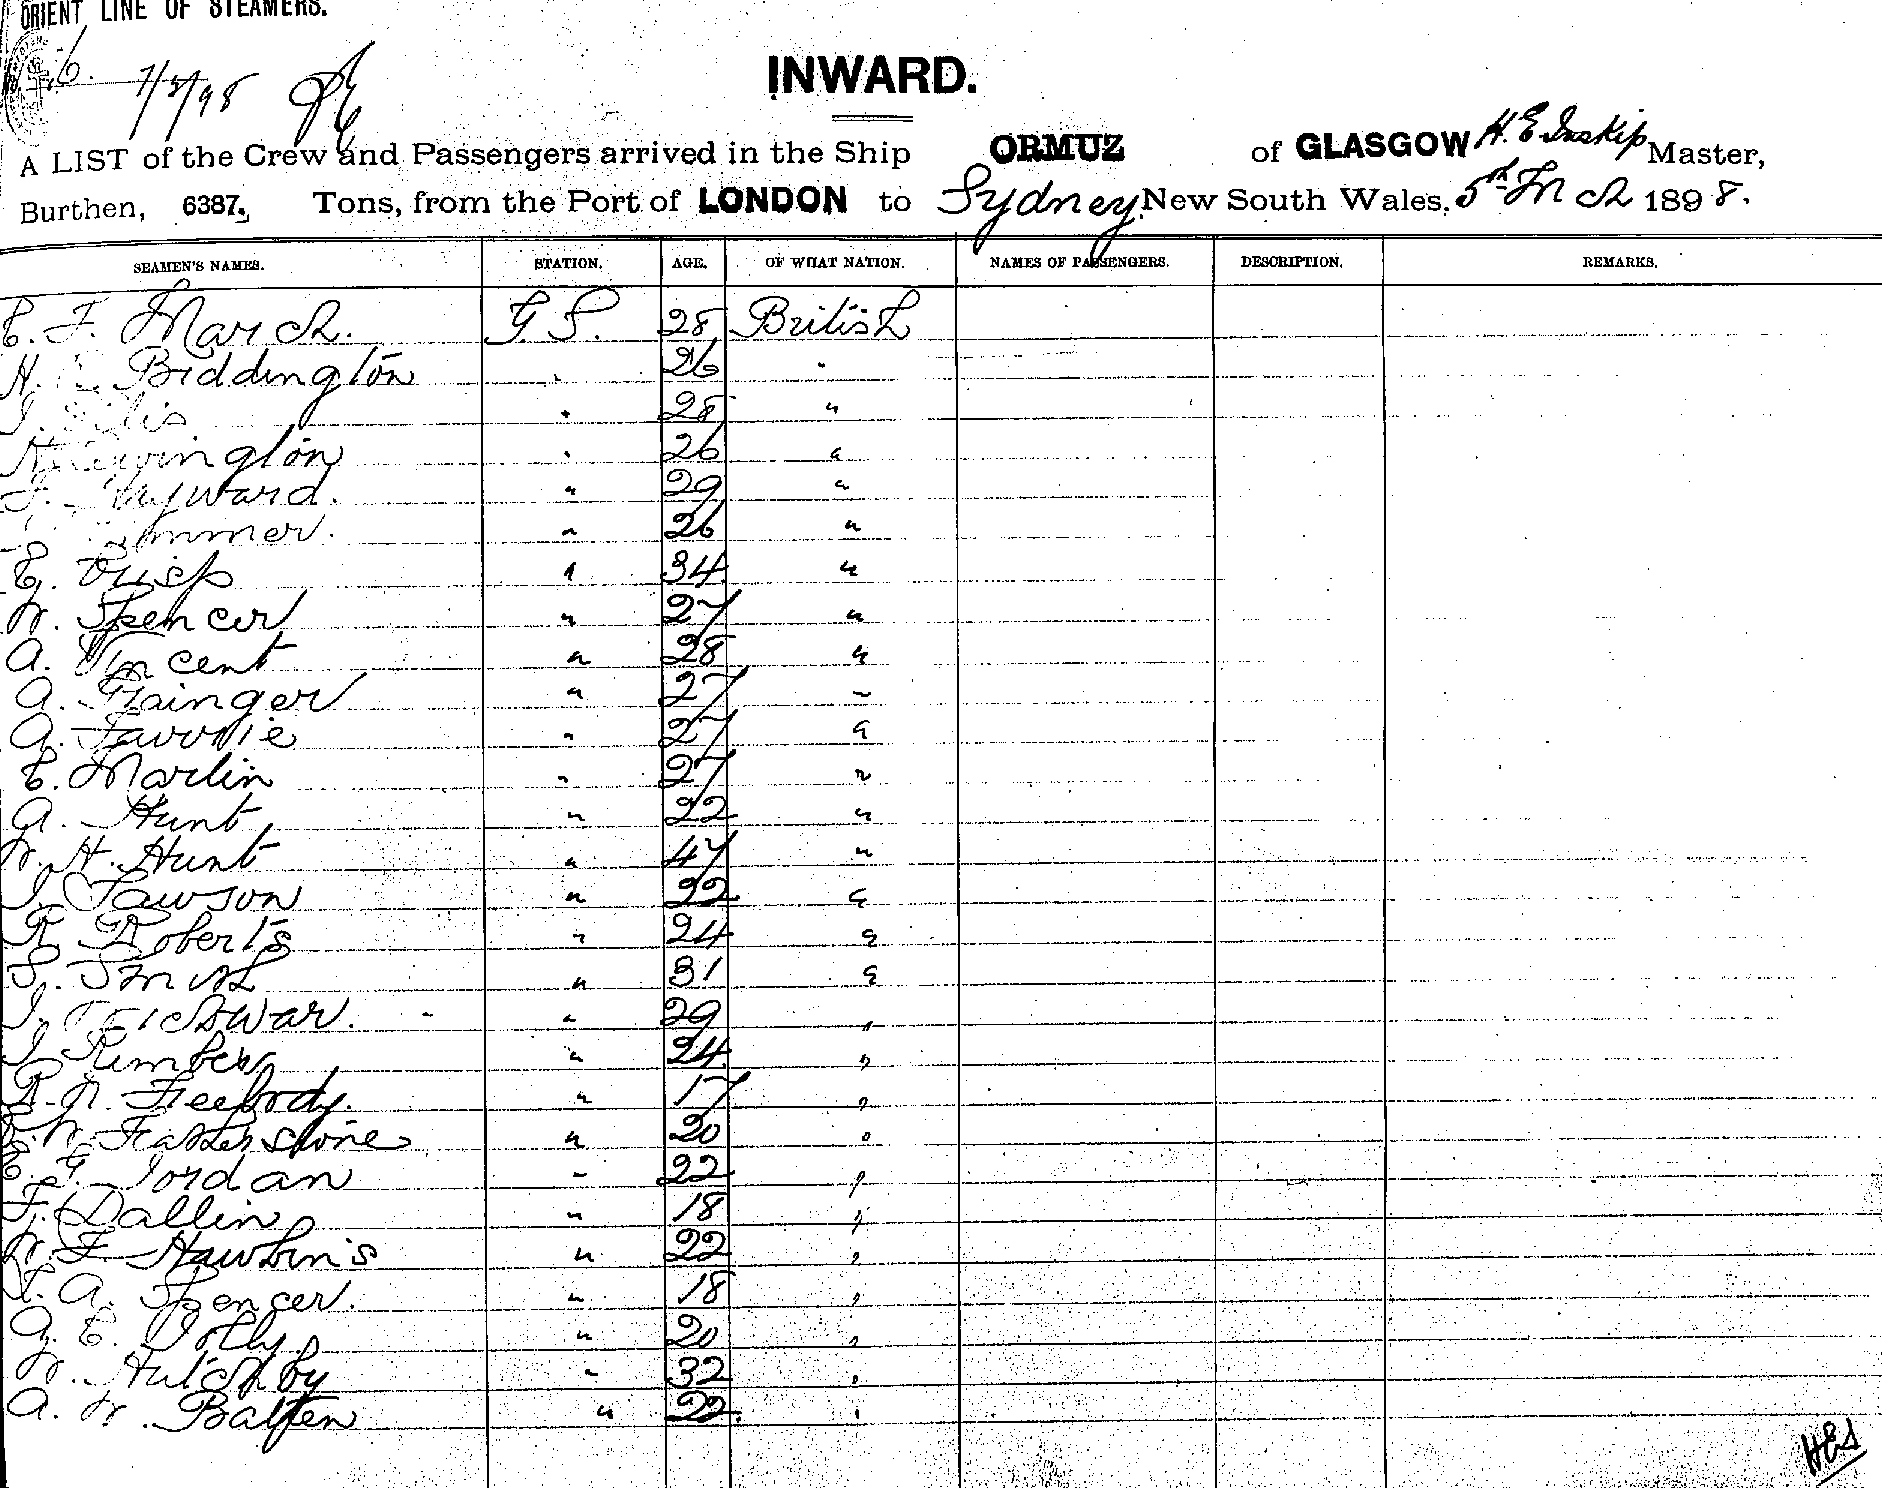 ORIENT LINE OF STEAMERS.
6. 7/3/98
INWARD.
A LIST of the Crew and Passengers arrived in the Ship ORMUZ of GLASGOW H. E. Inskip Master,
Burthen, 6387, Tons, from the Port of LONDON to Sydney, New South Wales, 5th Mch 1898.
SEAMEN'S NAMES. STATION. AGE. OF WHAT NATION. NAMES OF PASSENGERS. DESCRIPTION. REMARKS.
E. F. March. G. S. 28 British
H. Biddington " 26 "
J. " 28 "
" 26 "
Hayward. " 29 "
" 26 "
E. Crisp " 34 "
W. Spencer " 27 "
A. Vincent " 28 "
A. Grainger " 27 "
A. " 27 "
E. Martin " 27 "
A. Hunt " 22 "
W. H. Hunt " 47 "
J. Lawson " 22 "
R. Roberts " 24 "
S. Smith " 31 "
J. " 29 "
J. " 24 "
R. W. Freebody. " 17 "
W. Featherstone " 20 "
E. G. Jordan " 22 "
F. Dallin " 18 "
W. F. Hawkins " 22 "
A. Spencer. " 18 "
E. Jolly " 20 "
W. Hutchby " 32 "
A. W. " 22 "
HEI